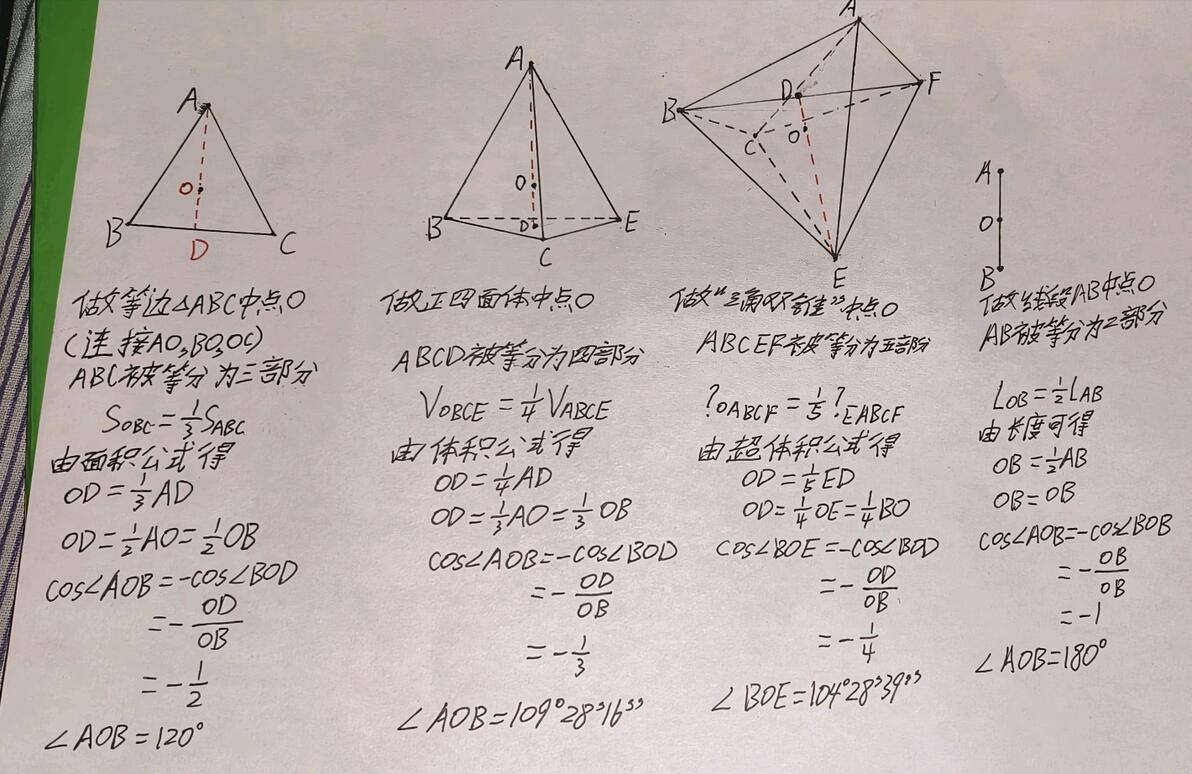 A
O
B
D
C
做等边△ABC中点O
(连接AO,BO,OC)
ABC被等分为三部分
S_OBC=1/3 S_ABC
由面积公式得
OD=1/3 AD
OD=1/2 AO=1/2 OB
cos∠AOB=-cos∠BOD
=-OD/OB
=-1/2
∠AOB=120°
A
O
B
D
E
C
做正四面体中点O
ABCD被等分为四部分
V_OBCE=1/4 V_ABCE
由体积公式得
OD=1/4 AD
OD=1/3 AO=1/3 OB
cos∠AOB=-cos∠BOD
=-OD/OB
=-1/3
∠AOB=109°28'16''
A
F
D
B
C
O
E
做"三角双锥"中点O
ABCEF被等分为五部分
?_OABCF=1/5 ?_EABCF
由超体积公式得
OD=1/5 ED
OD=1/4 OE=1/4 BO
cos∠BOE=-cos∠BOD
=-OD/OB
=-1/4
∠BOE=104°28'39''
A
O
B
做线段AB中点O
AB被等分为2部分
L_OB=1/2 L_AB
由长度可得
OB=1/2 AB
OB=OB
cos∠AOB=-cos∠BOB
=-OB/OB
=-1
∠AOB=180°